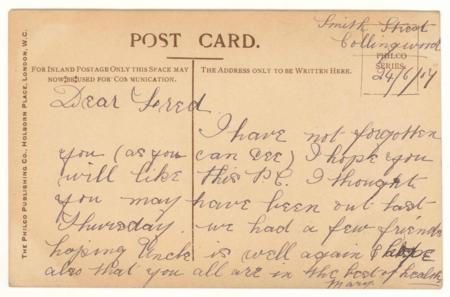 Smith Street
Collingwood
24/6/07
POST CARD.
PHILCO
SERIES
FOR INLAND POSTAGE ONLY THIS SPACE MAY
NOW BE USED FOR COMMUNICATION.
THE ADDRESS ONLY TO BE WRITTEN HERE.
THE PHILCO PUBLISHING CO., HOLBORN PLACE, LONDON, W.C.
Dear
I have not forgotten
you (as you can see) I hope you
will like this P.C. I thought
you may have been out last
Thursday. we had a few friends
hoping Uncle is well again &
also that you all are in the best of health
Mary